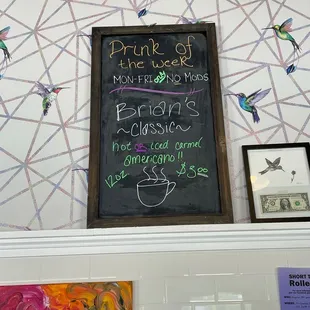 Drink of
the week
MON-FRI NO MODS
Brian's
~Classic~
Hot or iced carmel
americano!!
12oz $3.00
SHORT
Rolle